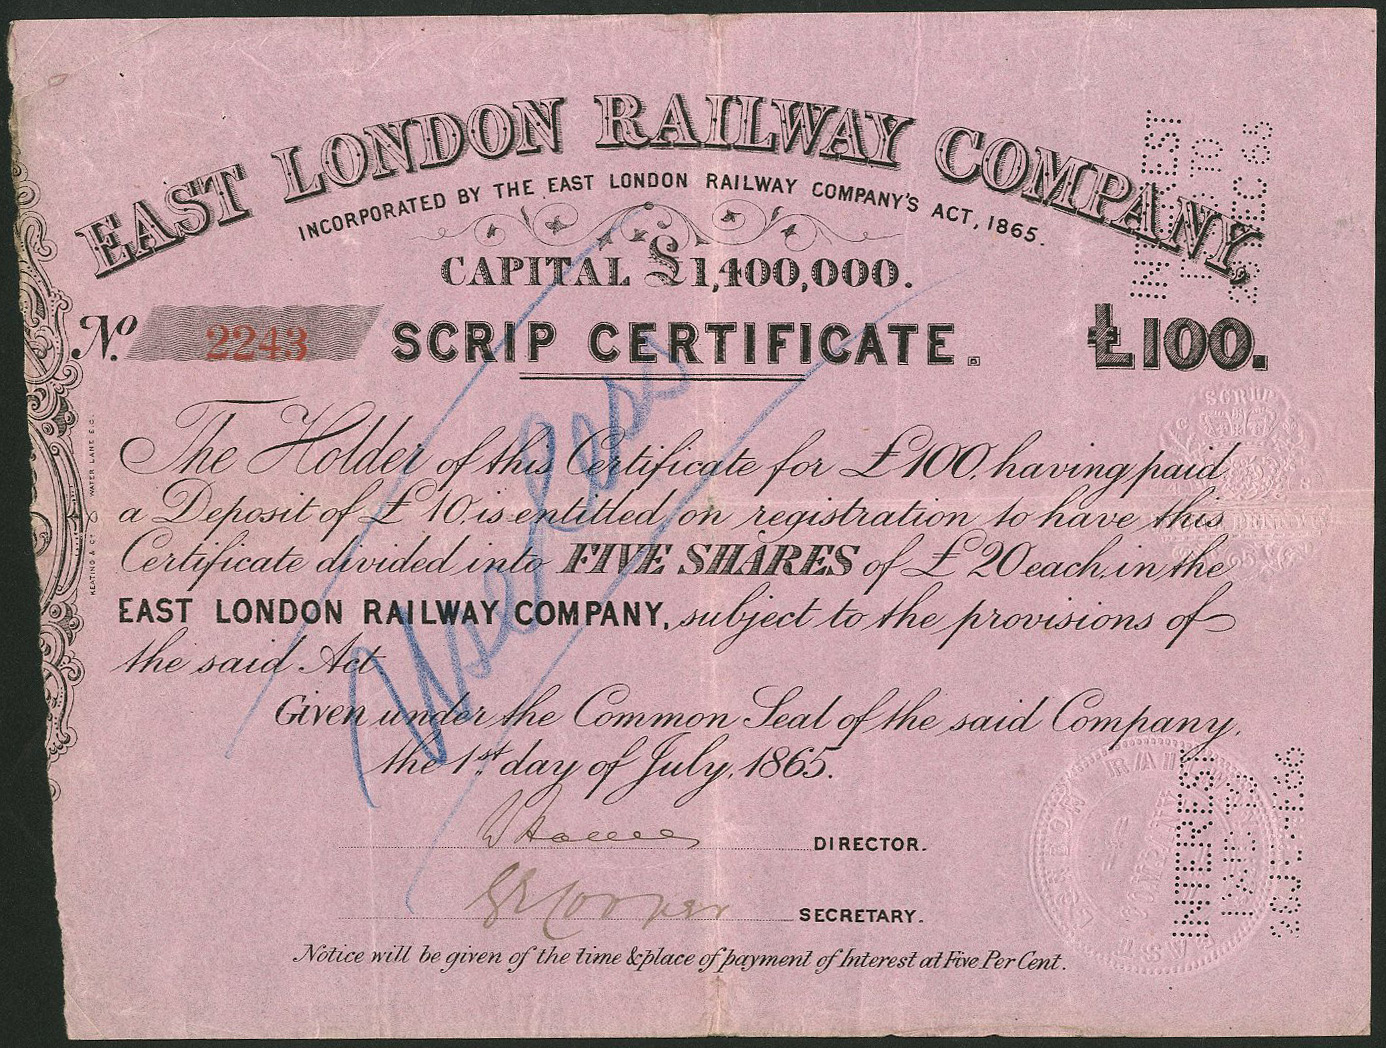 EAST LONDON RAILWAY COMPANY,
INCORPORATED BY THE EAST LONDON RAILWAY COMPANY'S ACT, 1865.
CAPITAL £1,400,000.
No. 2243 SCRIP CERTIFICATE. £100.
The Holder of this Certificate for £100, having paid
a Deposit of £10, is entitled on registration to have this
Certificate divided into FIVE SHARES of £20 each, in the
EAST LONDON RAILWAY COMPANY, subject to the provisions of
the said Act
Given under the Common Seal of the said Company,
the 1st day of July, 1865.
DIRECTOR.
Cooper SECRETARY.
Notice will be given of the time & place of payment of Interest at Five Per Cent.
Useless
KEATING & Co WATER LANE E.C.
INTEREST
PAID TO
31 DEC 65
INTEREST
SCRIP
EAST LONDON RAILWAY
COMPANY